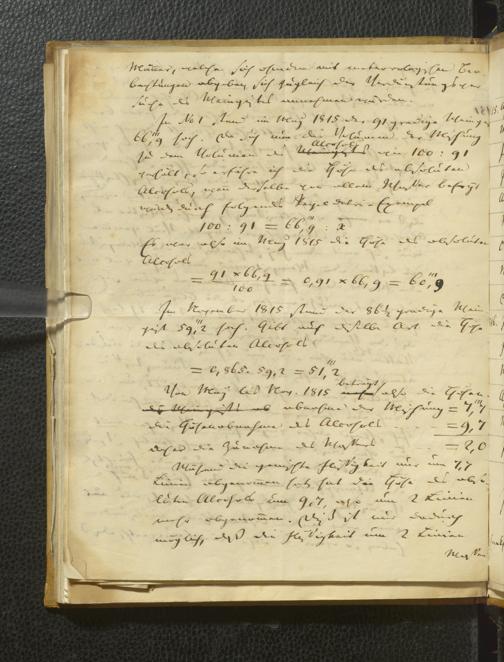 Männer, welche sich ohnedem mit meteorologischen Beo-
bachtungen abgeben, sich zugleich der Verdunstungsver
suche des Weingeistes annehmen würden.
In No 1 stand im May 1815 der 91 gradige Weingeist
66,'''9 hoch. Da sich nun das Volumen der Mischung
zu dem Volumen des Alcohols wie 100 : 91
verhält, so erfahre ich die Höhe des absoluten
Alcohols, wenn derselbe von allem Wasser befreyt
durch folgendes Regel de tri Exempel
100 : 91 = 66,'''9 : x
Es war also im May 1815 die Höhe des absoluten
Alcohols
= 91 × 66,9 / 100 = 0,91 × 66,9 = 60,'''9
Im November 1815 stand der 86½ gradige Wein
geist 59,'''2 hoch. Gibt auf dieselbe Art die Höhe
des absoluten Alcohols
= 0,865. 59,2 = 51,'''2
Von May bis Nov. 1815 beträgt also die Höhen-
abnahme der Mischung = 7,'''7
die Höhenabnahme des Alcohols = 9,7
daher die Zunahme des Wassers = 2,0
Während die gemischte Flüssigkeit nur um 7,7
Linien abgenommen hat, hat die Höhe des abso-
luten Alcohols um 9,7, also um 2 Linien
mehr abgenommen. Dieß ist nur dadurch
möglich, daß die Flüssigkeit um 2 Linien